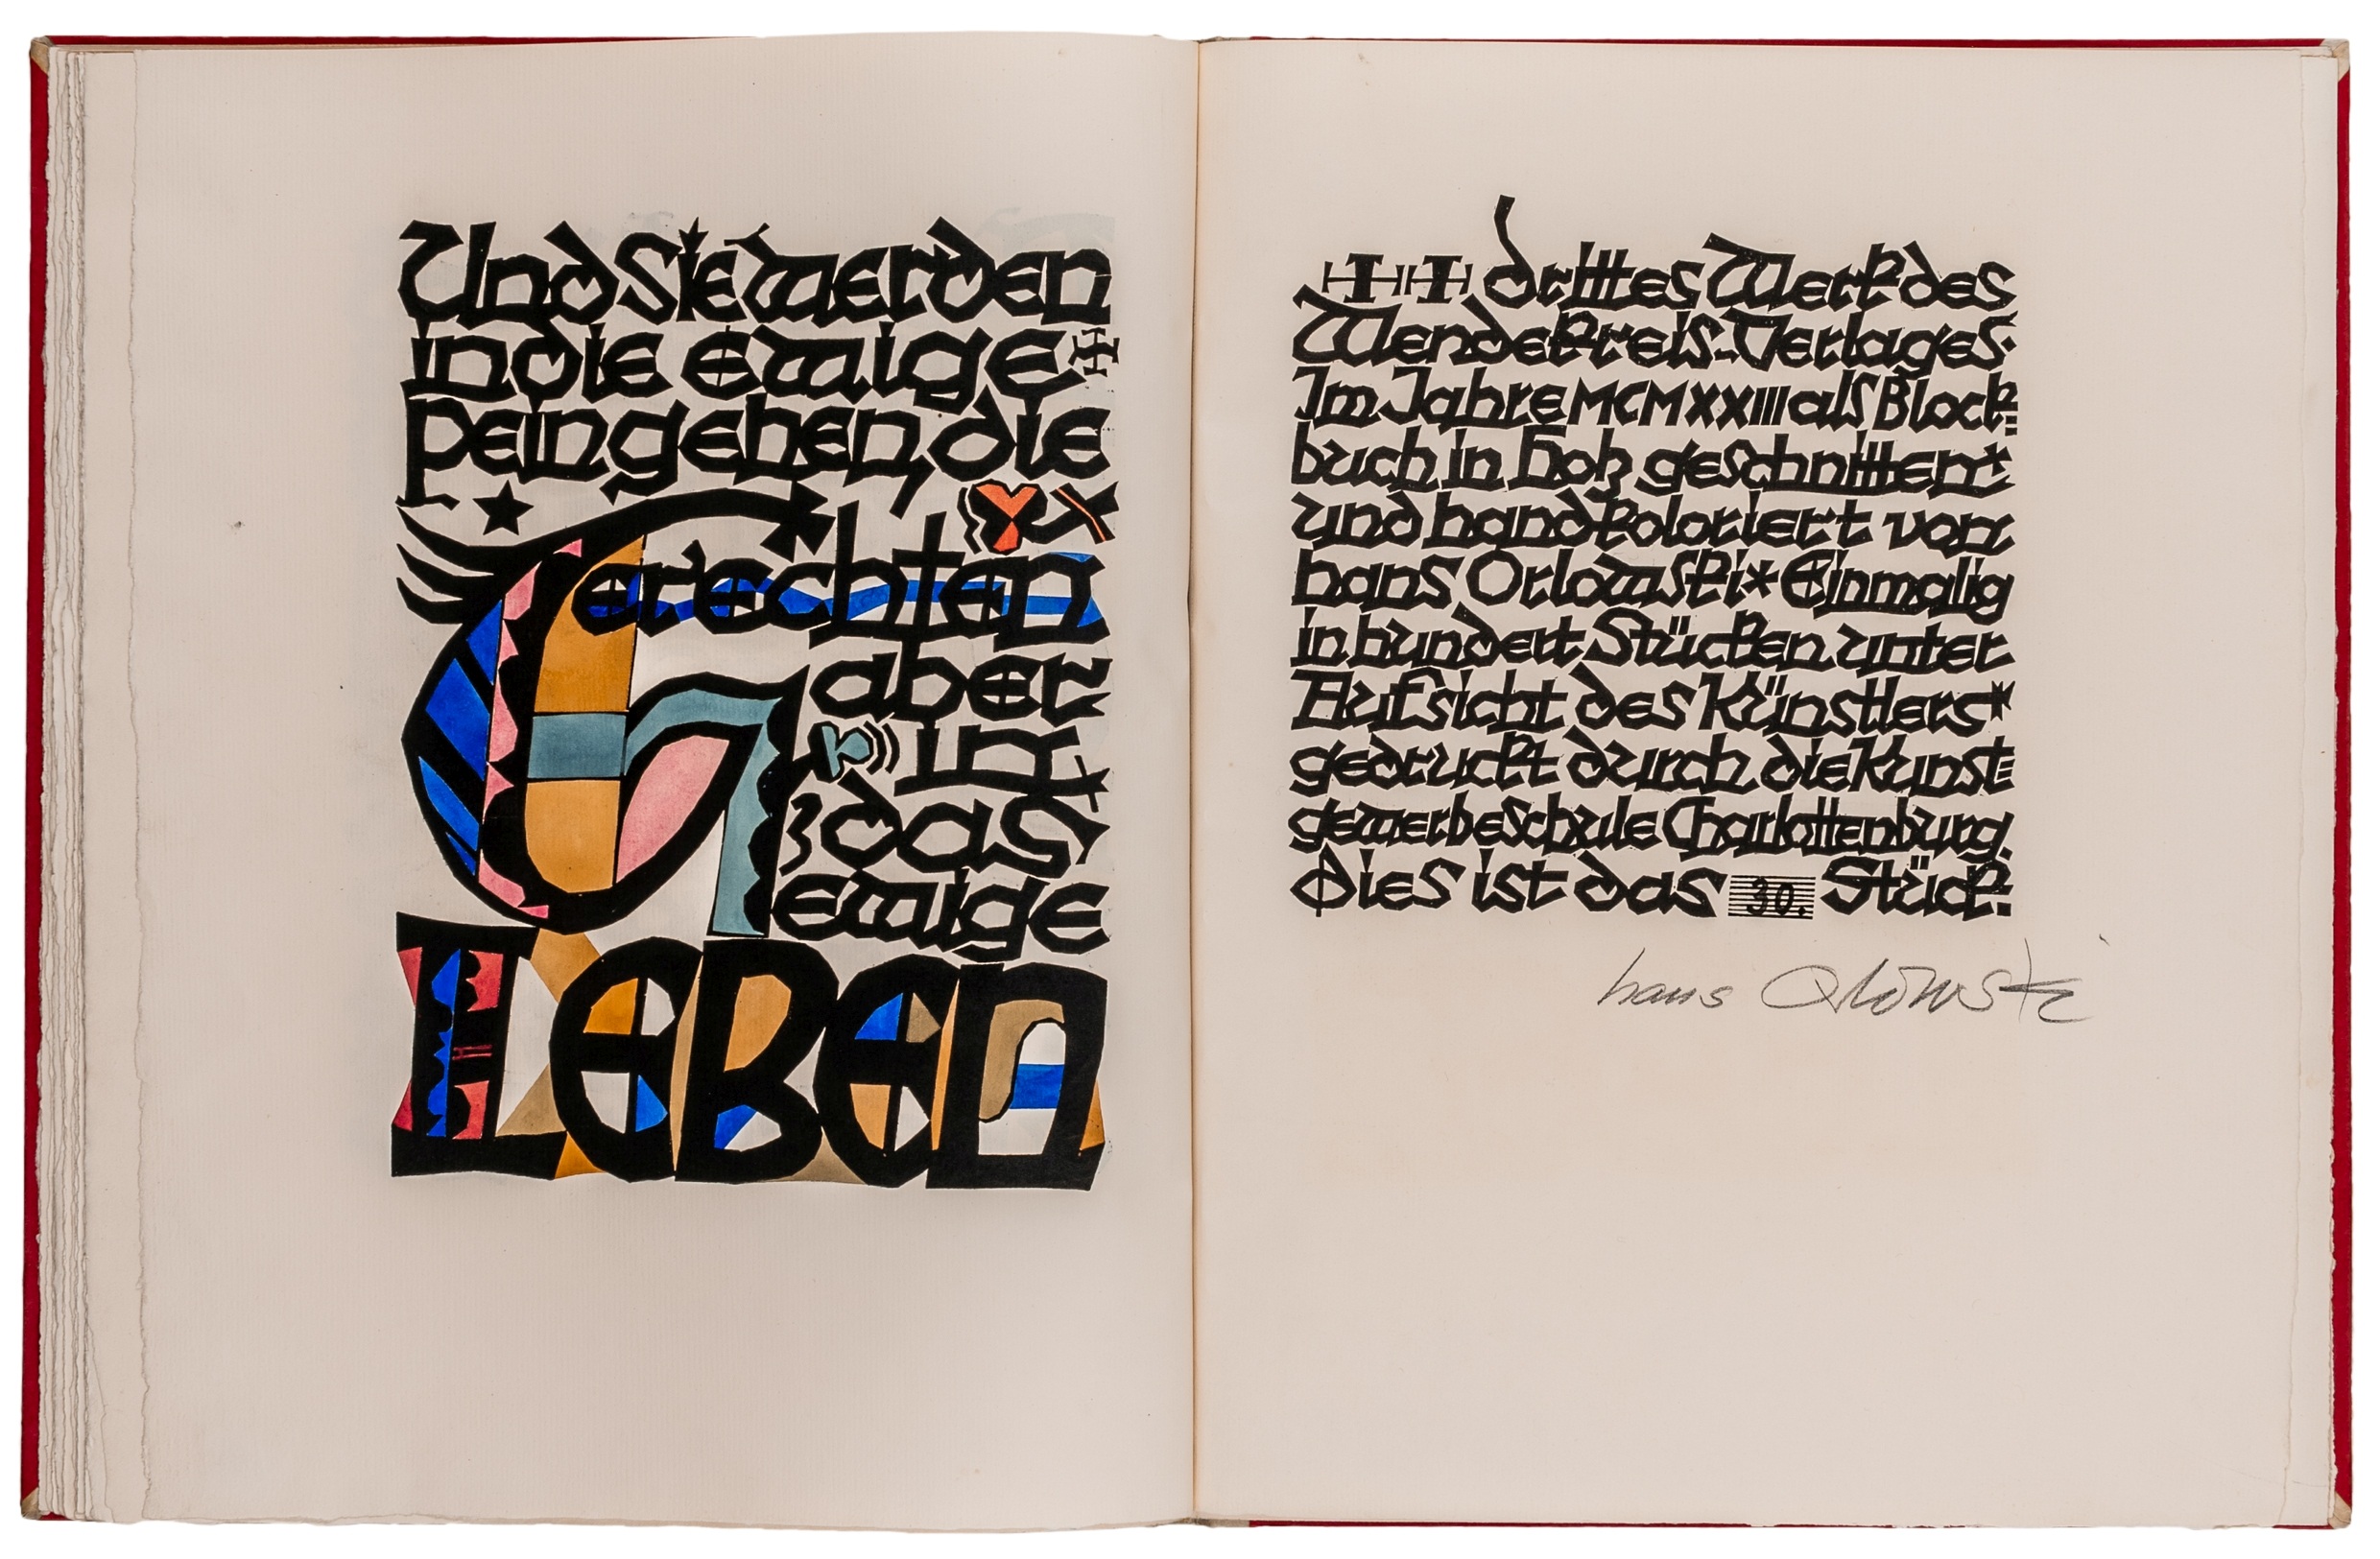 Und Sie werden
in die ewige
pein gehen, die
Gerechten
aber
in
das
ewige
LEBEN
drittes Werk des
Wendekreis-Verlages.
Im Jahre MCMXXIII als Block=
buch in holz geschnitten
und handkoloriert von
hans Orlowski * Einmalig
in hundert Stücken unter
Aufsicht des Künstlers
gedruckt durch die Kunst=
gewerbeschule Charlottenburg.
Dies ist das 30. Stück.
hans Orlowski